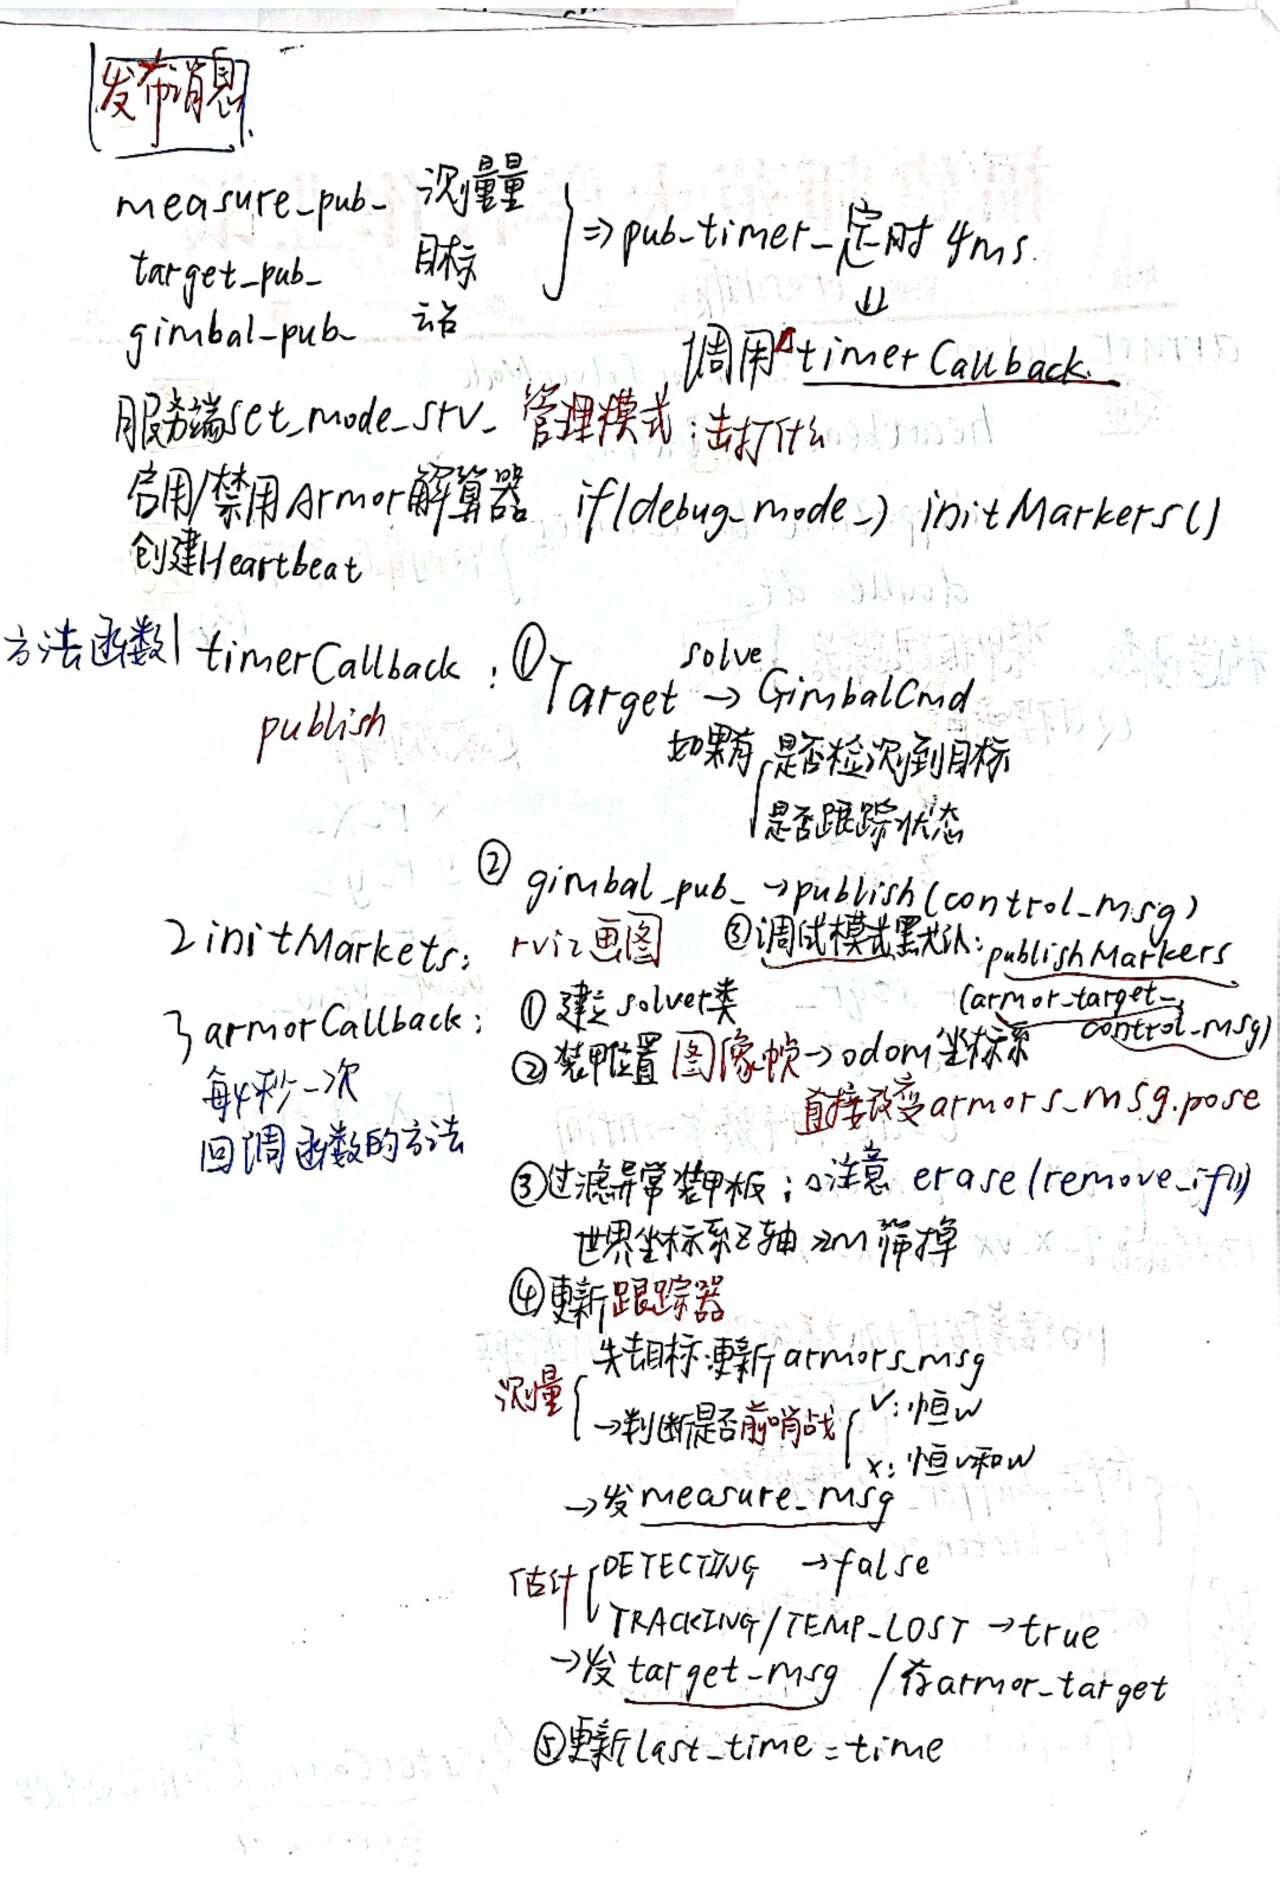 发布消息
measure_pub_ 测量量
target_pub_ 目标
gimbal_pub_ 云台
⇒ pub_timer_ 定时 4ms.
⇓
调用 timerCallback.
服务端set_mode_srv_ 管理模式：击打什么
启用/禁用Armor解算器 if(debug_mode_) initMarkers()
创建Heartbeat
方法函数 1 timerCallback：① Target → GimbalCmd
solve
publish
如果有 是否检测到目标
是否跟踪状态
② gimbal_pub_→publish(control_msg)
2 initMarkets： rviz画图
③调试模式默认：publishMarkers
(armor_target_,
control_msg)
3 armorCallback： ① 建立solver类
②装甲位置 图像帧→odom坐标系
每4秒一次
直接改变armors_msg.pose
回调函数的方法
③过滤异常装甲板；注意 erase(remove_if())
世界坐标系Z轴 >2m 筛掉
④更新跟踪器
失去目标：更新armors_msg
测量
→判断是否前哨战
V：恒w
x：恒v和w
→发measure_msg
估计
DETECTING →false
TRACKING/TEMP_LOST →true
→发target_msg /存armor_target
⑤更新last_time=time